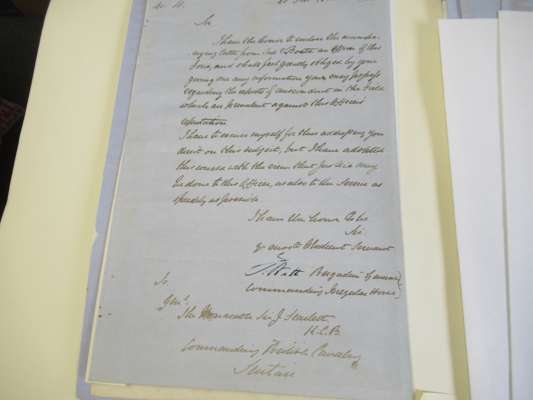 Sir
I have the honor to enclose the accompa-
nying letter from
an Officer of this
Force, and shall feel greatly obliged by your
giving me any information you may possess
regarding the reports of misconduct in the Field
which are prevalent against this Officers
reputation
I have to excuse myself for thus addressing you
direct on this subject, but I have adopted
this course with the view that justice may
be done to this Officer, as also to the Service as
speedily as possible
I have the honor to be
Sir
Yr most Obedient Servant
Brigadier General
Commanding Irregular Horse
To
The Honorable Sir J. Scarlett
K.C.B.
Commanding British Cavalry
Scutari